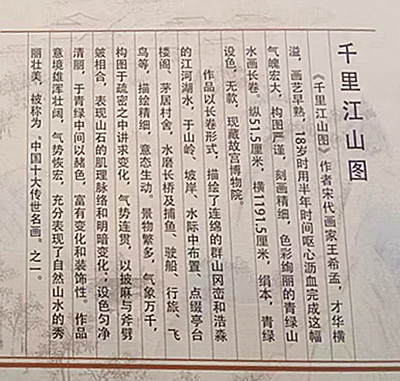 千里江山图
《千里江山图》作者宋代画家王希孟，才华横
溢，画艺早熟，18岁时用半年时间呕心沥血完成这幅
气魄宏大，构图严谨，刻画精细，色彩绚丽的青绿山
水画长卷。纵51.5厘米，横1191.5厘米，绢本，青绿
设色，无款，现藏故宫博物院。
作品以长卷形式，描绘了连绵的群山冈峦和浩淼
的江河湖水，于山岭、坡岸、水际中布置、点缀亭台
楼阁、茅居村舍，水磨长桥及捕鱼、驶船、行旅、飞
鸟等，描绘精细，意态生动。景物繁多，气象万千，
构图于疏密之中讲求变化，气势连贯，以披麻与斧劈
皴相合，表现山石的肌理脉络和明暗变化，设色匀净
清丽，于青绿中间以赭色，富有变化和装饰性。作品
意境雄浑壮阔，气势恢宏，充分表现了自然山水的秀
丽壮美，被称为“中国十大传世名画”之一。